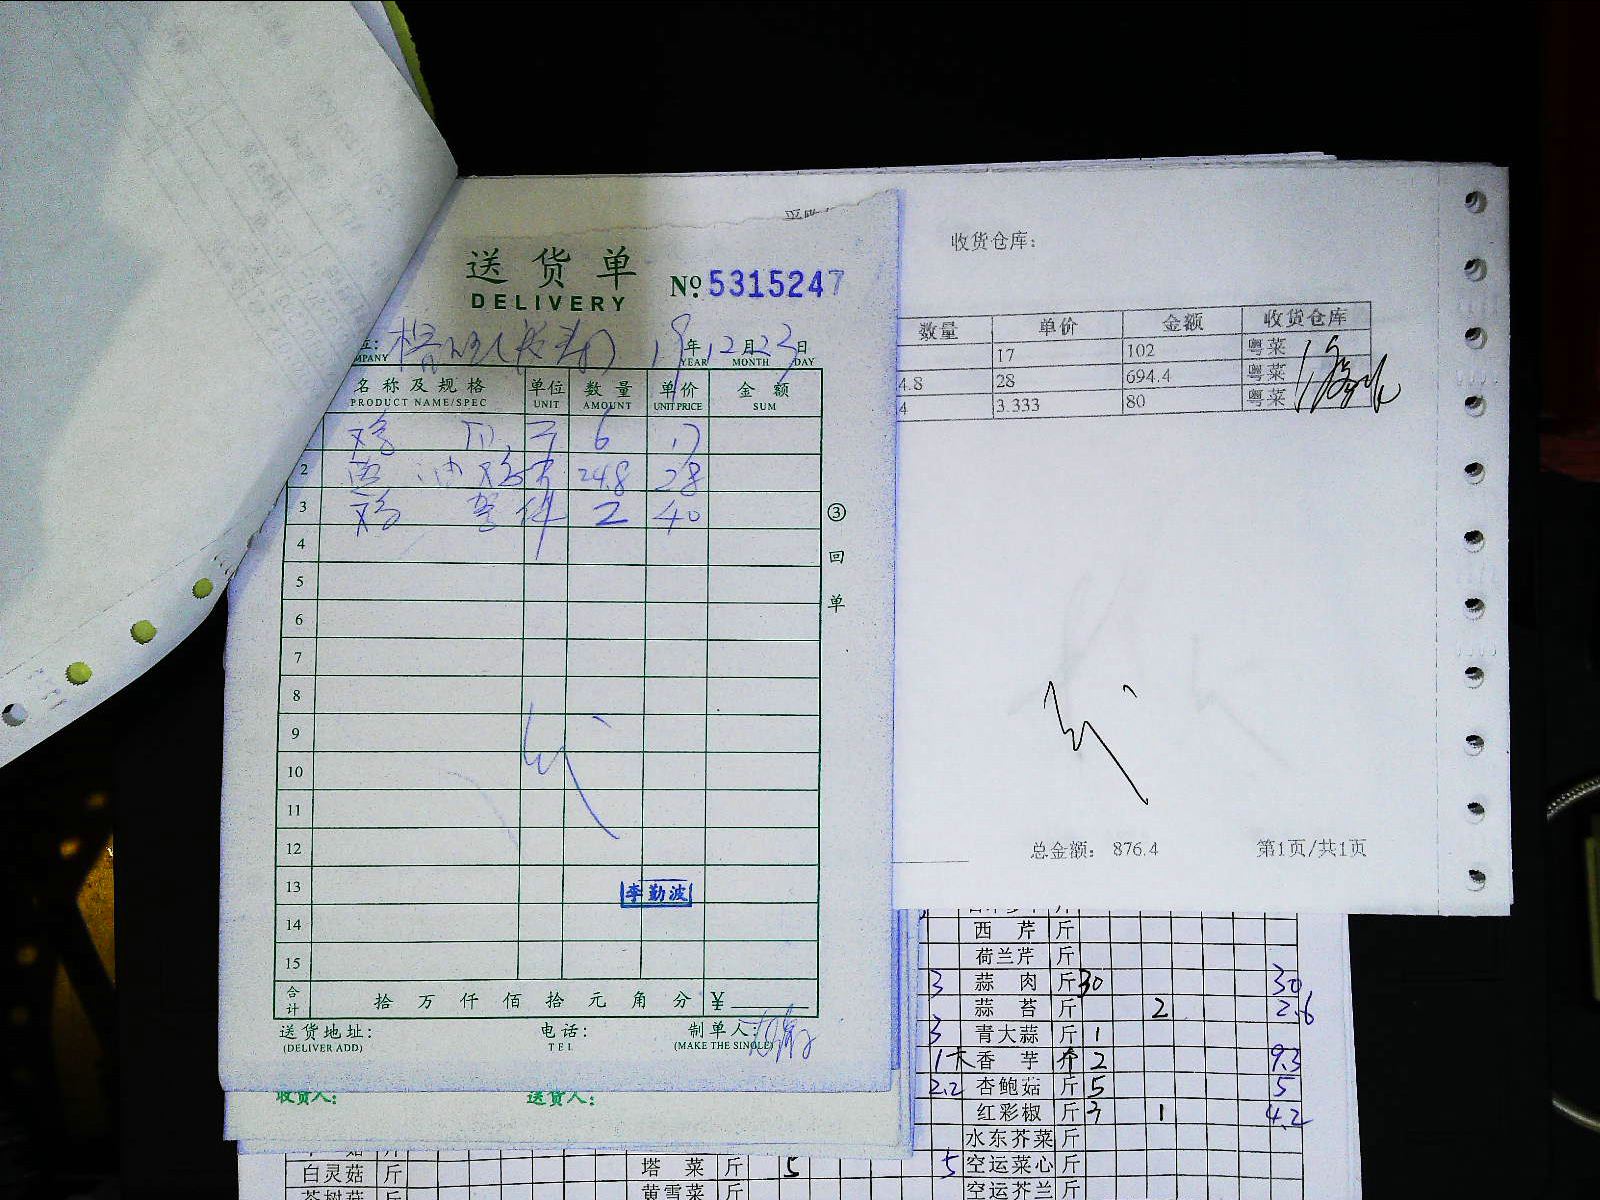 收货仓库:
送货单
№ 5315247
DELIVERY
19年12月23日
MPANY YEAR MONTH DAY
名称及规格 单位 数量 单价 金额
PRODUCT NAME/SPEC UNIT AMOUNT UNIT PRICE SUM
鸡 6 17
2 鸡 24.8 28
3 鸡 件 2 40
4
5
6
7
8
9
10
11
12
13
14
15
③回单
李勤波
合计 拾 万 仟 佰 拾 元 角 分 ¥
送货地址: 电话: 制单人:
(DELIVER ADD) TEL (MAKE THE SINGLE)
收货人: 送货人:
数量 单价 金额 收货仓库
17 102 粤菜
4.8 28 694.4 粤菜
4 3.333 80 粤菜
总金额: 876.4 第1页/共1页
西芹 斤
荷兰芹 斤
3 蒜肉 斤 30 30
蒜苔 斤 2 2.6
3 青大蒜 斤 1
1 香芋 2 9.3
2.2 杏鲍菇 斤 5 5
红彩椒 斤 3 1 4.2
水东芥菜 斤
白灵菇 斤 塔菜 斤 5 5 空运菜心 斤
茶树菇 斤 黄雪菜 斤 空运芥兰 斤